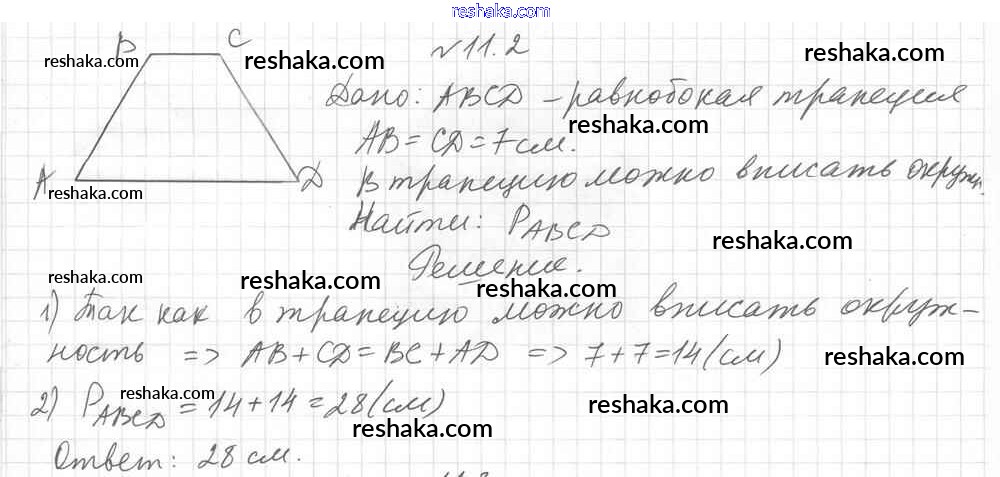 reshaka.com
B
C
A
D
№ 11.2
Дано: ABCD – равнобокая трапеция
AB = CD = 7 см.
В трапецию можно вписать окружн.
Найти: P ABCD
Решение.
1) Так как в трапецию можно вписать окруж-
ность => AB + CD = BC + AD => 7 + 7 = 14 (см)
2) P ABCD = 14 + 14 = 28 (см)
Ответ: 28 см.
reshaka.com
reshaka.com
reshaka.com
reshaka.com
reshaka.com
reshaka.com
reshaka.com
reshaka.com
reshaka.com
reshaka.com
reshaka.com
reshaka.com
reshaka.com